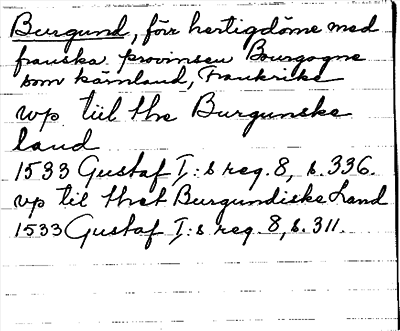 Burgund, förr hertigdöme med
franska provinsen Bourgogne
som kärnland, Frankrike
vp tiil the Burgunske
land
1533 Gustaf I:s reg. 8, s. 336.
vp til thet Burgundiske Land
1533 Gustaf I:s reg. 8, s. 311.